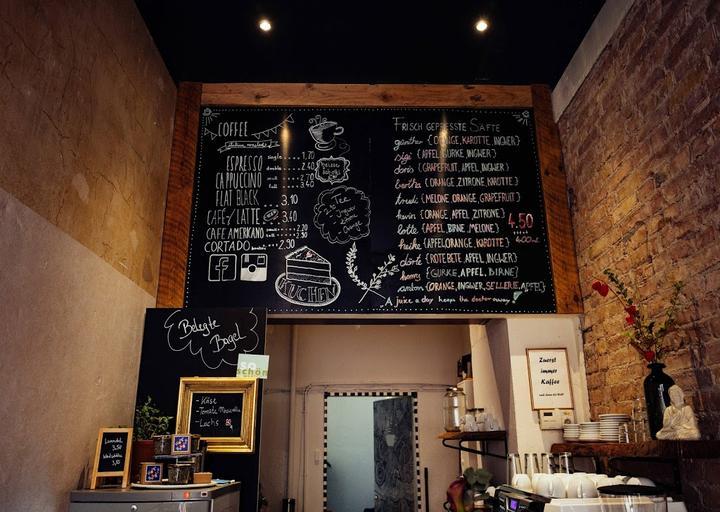 COFFEE
ESPRESSO single 1,70
CAPPUCCINO
FLAT BLACK 3,10
CAFÉ/LATTE 3,40
CAFE AMERICANO 2.20
CORTADO 2.30
Tee
f
KUCHEN
FRISCH GEPRESSTE SÄFTE
günther {ORANGE, KAROTTE, INGWER}
sigi {APFEL, GURKE, INGWER}
doris {GRAPEFRUIT, APFEL, INGWER}
bertha {ORANGE, ZITRONE, KAROTTE}
{MELONE, ORANGE, GRAPEFRUIT}
kevin {ORANGE, APFEL, ZITRONE}
lotte {APFEL, BIRNE, MELONE}
4.50
heike {APFEL, ORANGE, KAROTTE}
400ml
dörte {ROTE BETE, APFEL, INGWER}
{GURKE, APFEL, BIRNE}
anton {ORANGE, INGWER, SELLERIE, APFEL}
A juice a day keeps the doctor away!
Belegte
Bagel
SO
schön
- Käse
- Tomate Mozzarella
- Lachs
3,50
3,50
Zuerst
immer
Kaffee